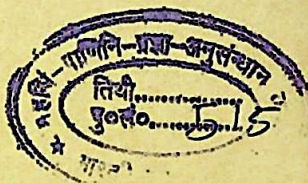 महर्षि-पाणिनि-प्रज्ञा-अनुसंधान
तिथी..............
पु०सं०........515